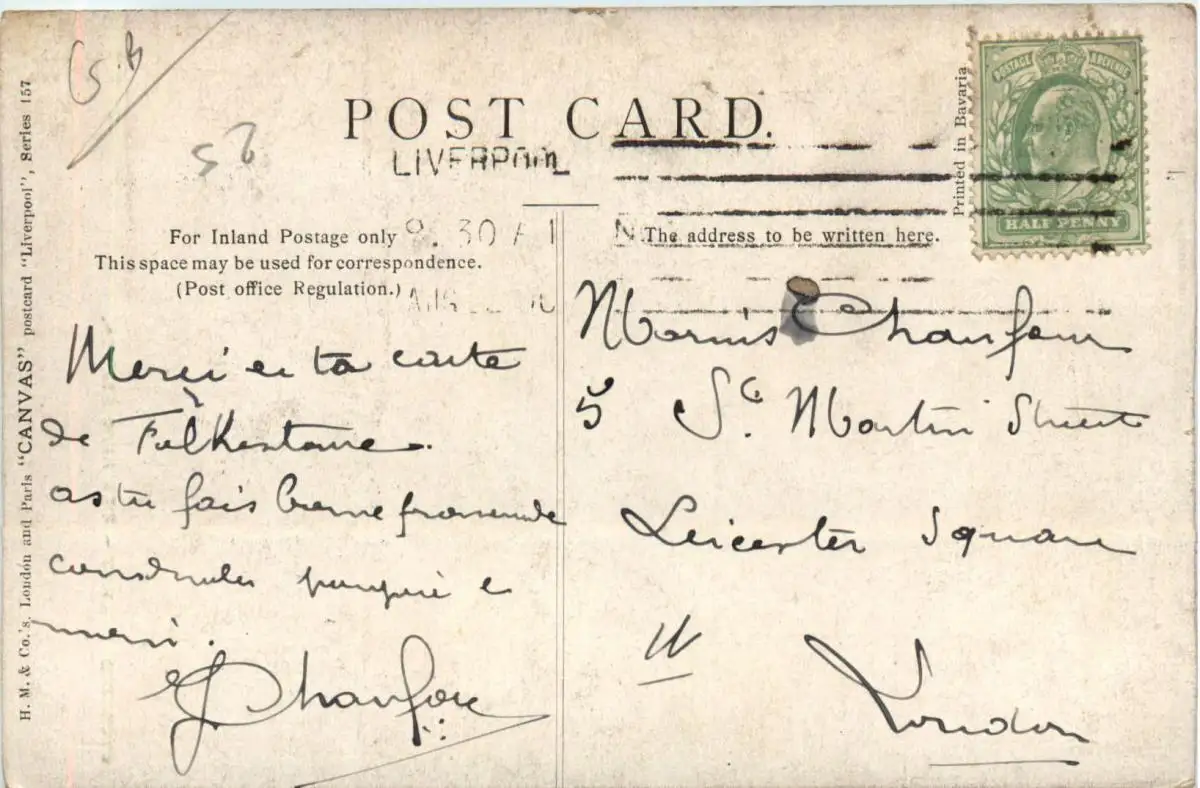 S.B
POST CARD.
LIVERPOOL
9.30 A
For Inland Postage only
This space may be used for correspondence.
(Post office Regulation.)
The address to be written here.
Printed in Bavaria
POSTAGE & REVENUE
HALF PENNY
H. M. & Co.'s. London and Paris "CANVAS" postcard "Liverpool", Series 157
Merci de ta carte
de Folkestone.
as tu fais bonne promenade
merci.
Chaufour
Chaufour
5 St. Martin Street
Leicester Square
W
London